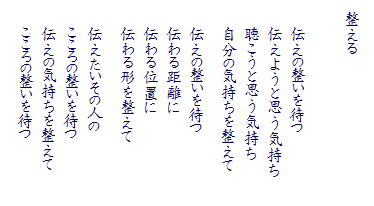 整える
伝えの整いを待つ
伝えようと思う気持ち
聴こうと思う気持ち
自分の気持ちを整えて
伝えの整いを待つ
伝わる距離に
伝わる位置に
伝わる形を整えて
伝えたいその人の
こころの整いを待つ
伝えの気持ちを整えて
こころの整いを待つ